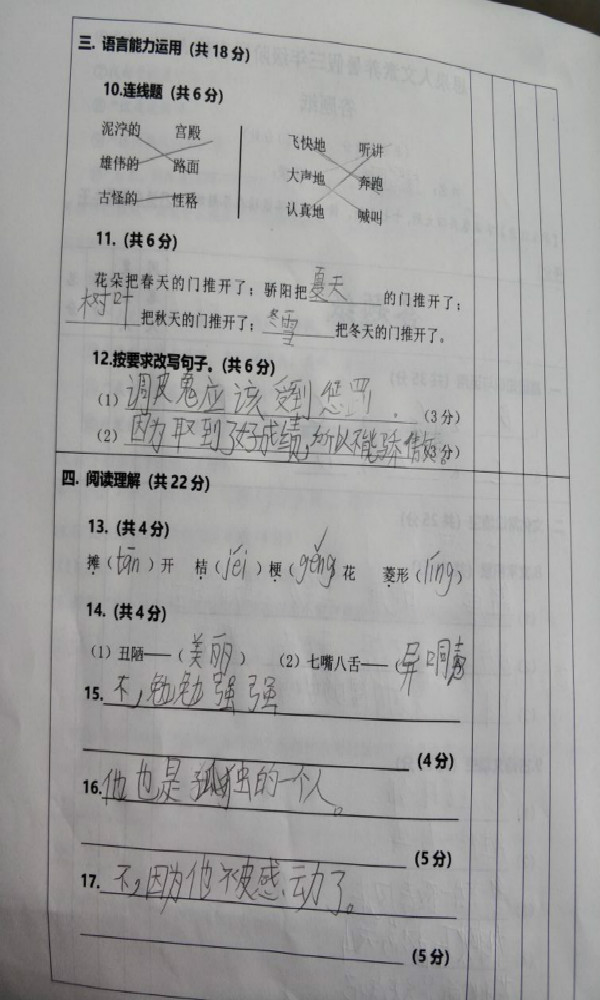 三. 语言能力运用（共18分）
10.连线题（共6分）
泥泞的 宫殿 飞快地 听讲
雄伟的 路面 大声地 奔跑
古怪的 性格 认真地 喊叫
11.（共6分）
花朵把春天的门推开了；骄阳把夏天的门推开了；
树叶把秋天的门推开了；冬雪把冬天的门推开了。
12.按要求改写句子。（共6分）
（1）调皮鬼应该受到惩罚。（3分）
（2）因为取到了好成绩，所以不能骄傲。（3分）
四. 阅读理解（共22分）
13.（共4分）
摊（tān）开 桔（jéi）梗（gěng）花 菱形（líng）
14.（共4分）
（1）丑陋——（美丽） （2）七嘴八舌——（异口同声
15. 不，勉勉强强
（4分）
16. 他也是孤独的一个人。
（5分）
17. 不，因为他被感动了。
（5分）